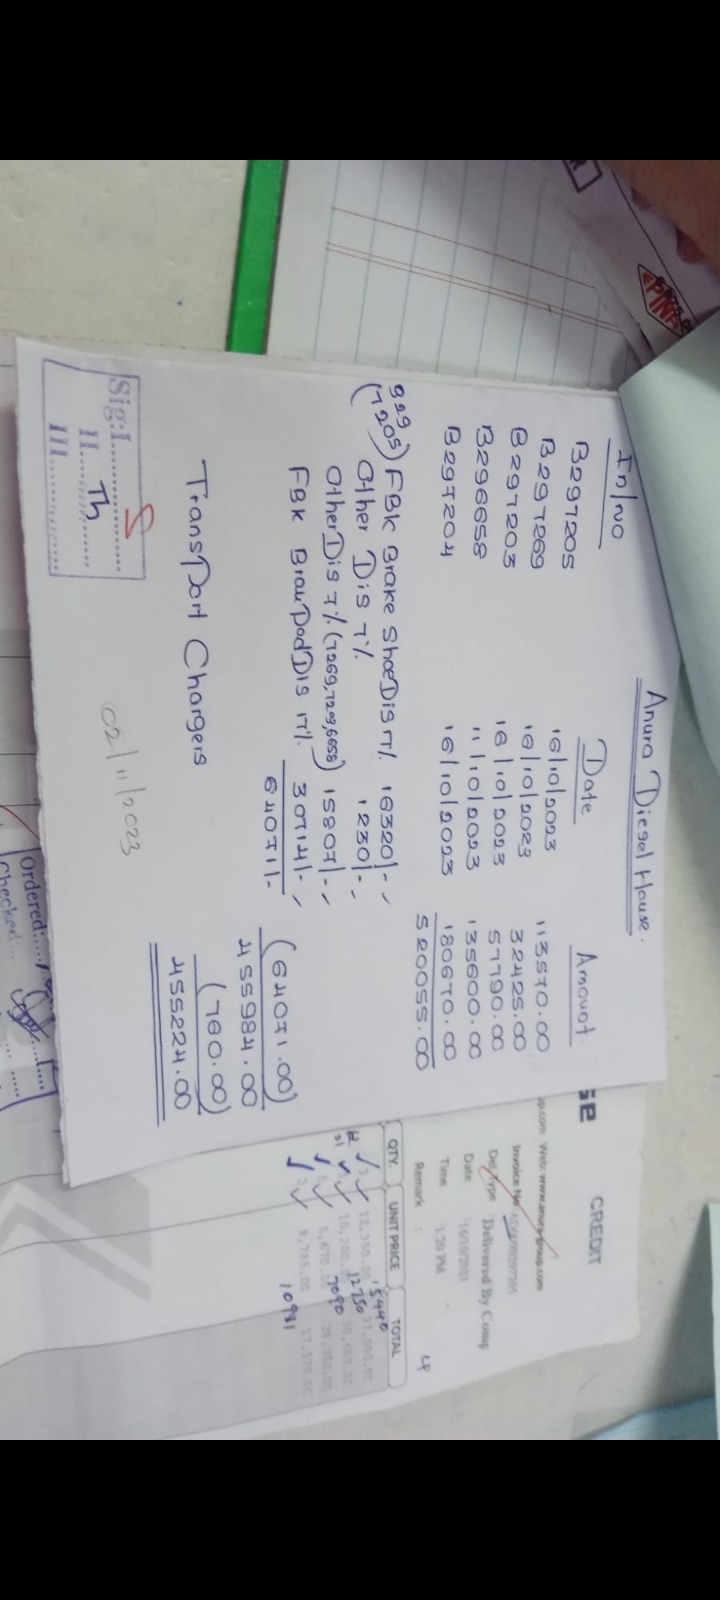 Anura Diesel House.
In/No Date Amount.
B297205 16/10/2023 113570.00
B297269 16/10/2023 32425.00
B297203 16/10/2023 57790.00
B296658 11/10/2023 135600.00
B297204 16/10/2023 180670.00
520055.00
B29
(7205) FBK Brake Shoe Dis 17% 16320/-
Other Dis 7% 1230/-
Other Dis 7% (7269,7203,6658) 15807/-
FBK Brau Pad Dis 17%. 30714/-
64071/- (64071.00)
455984.00
TransPort Chargers (760.00)
455224.00
Sig:I
II Th
III
02/11/2023
Ordered:
Checked
CREDIT
Web: www.anura-group.com
Invoice No
Del.Type Delivered By Comp
Date
Time 1:20 PM
Remark :
QTY. UNIT PRICE TOTAL
12,350.00 15440
12750
5,670.00 7090
8,785.00 10981 17,570.00